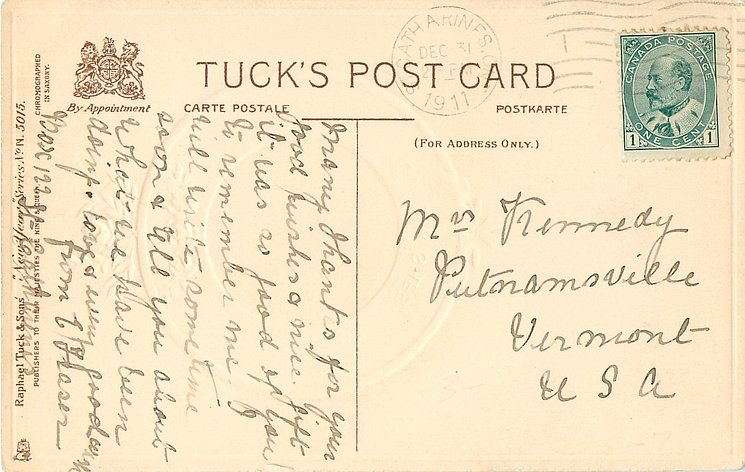 TUCK'S POST CARD
By Appointment
CARTE POSTALE
POSTKARTE
(FOR ADDRESS ONLY.)
CATHARINES
DEC 31
1911
CANADA POSTAGE
ONE CENT
1 1
Mrs Kennedy
Putnamsville
Vermont
U S A
Many thanks for your
good wishes & nice gift
it was so good of you
to remember me. I
will write some time
soon & tell you about
what we have been
doing. love & every good
from E Fraser
Box 122
Raphael Tuck & Sons' "New Year" Series No. N. 5015.
PUBLISHERS TO THEIR MAJESTIES THE KING & QUEEN
CHROMOGRAPHED
IN SAXONY.